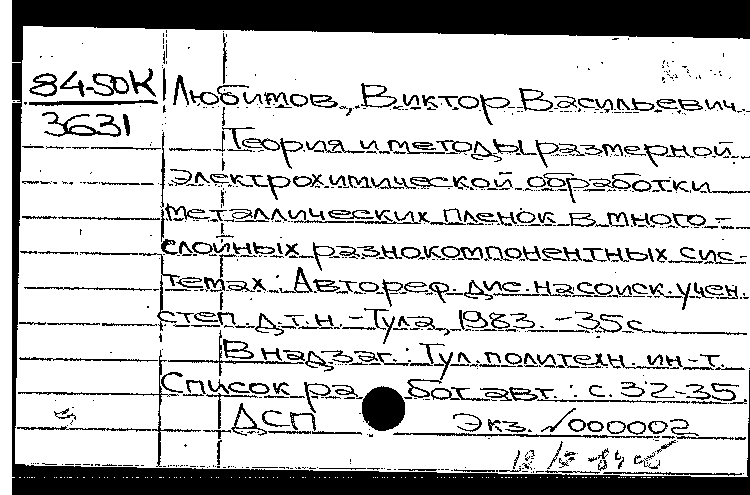 84-50К
3631
Любимов, Виктор Васильевич.
Теория и методы размерной
электрохимической обработки
металлических пленок в много-
слойных разнокомпонентных сис-
темах: Автореф. дис. на соиск. учен.
степ. д.т.н. - Тула, 1983. - 35 с.
В надзаг.: Тул. политехн. ин-т.
Список работ авт.: с. 32-35.
ДСП Экз. №000002